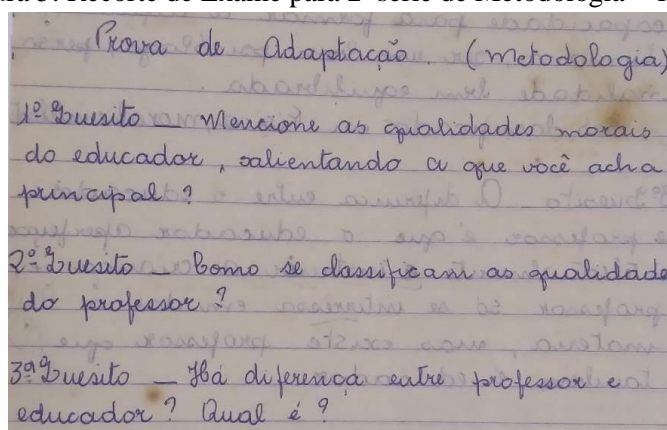 Recorte de Exame para 2ª série de Metodologia
Prova de Adaptacão. (metodologia)
1º Quesito — Mencione as qualidades morais
do educador, salientando a que você acha
principal?
2º Quesito — Como se classificam as qualidade
do professor?
3º Quesito — Há diferença entre professor e
educador? Qual é?